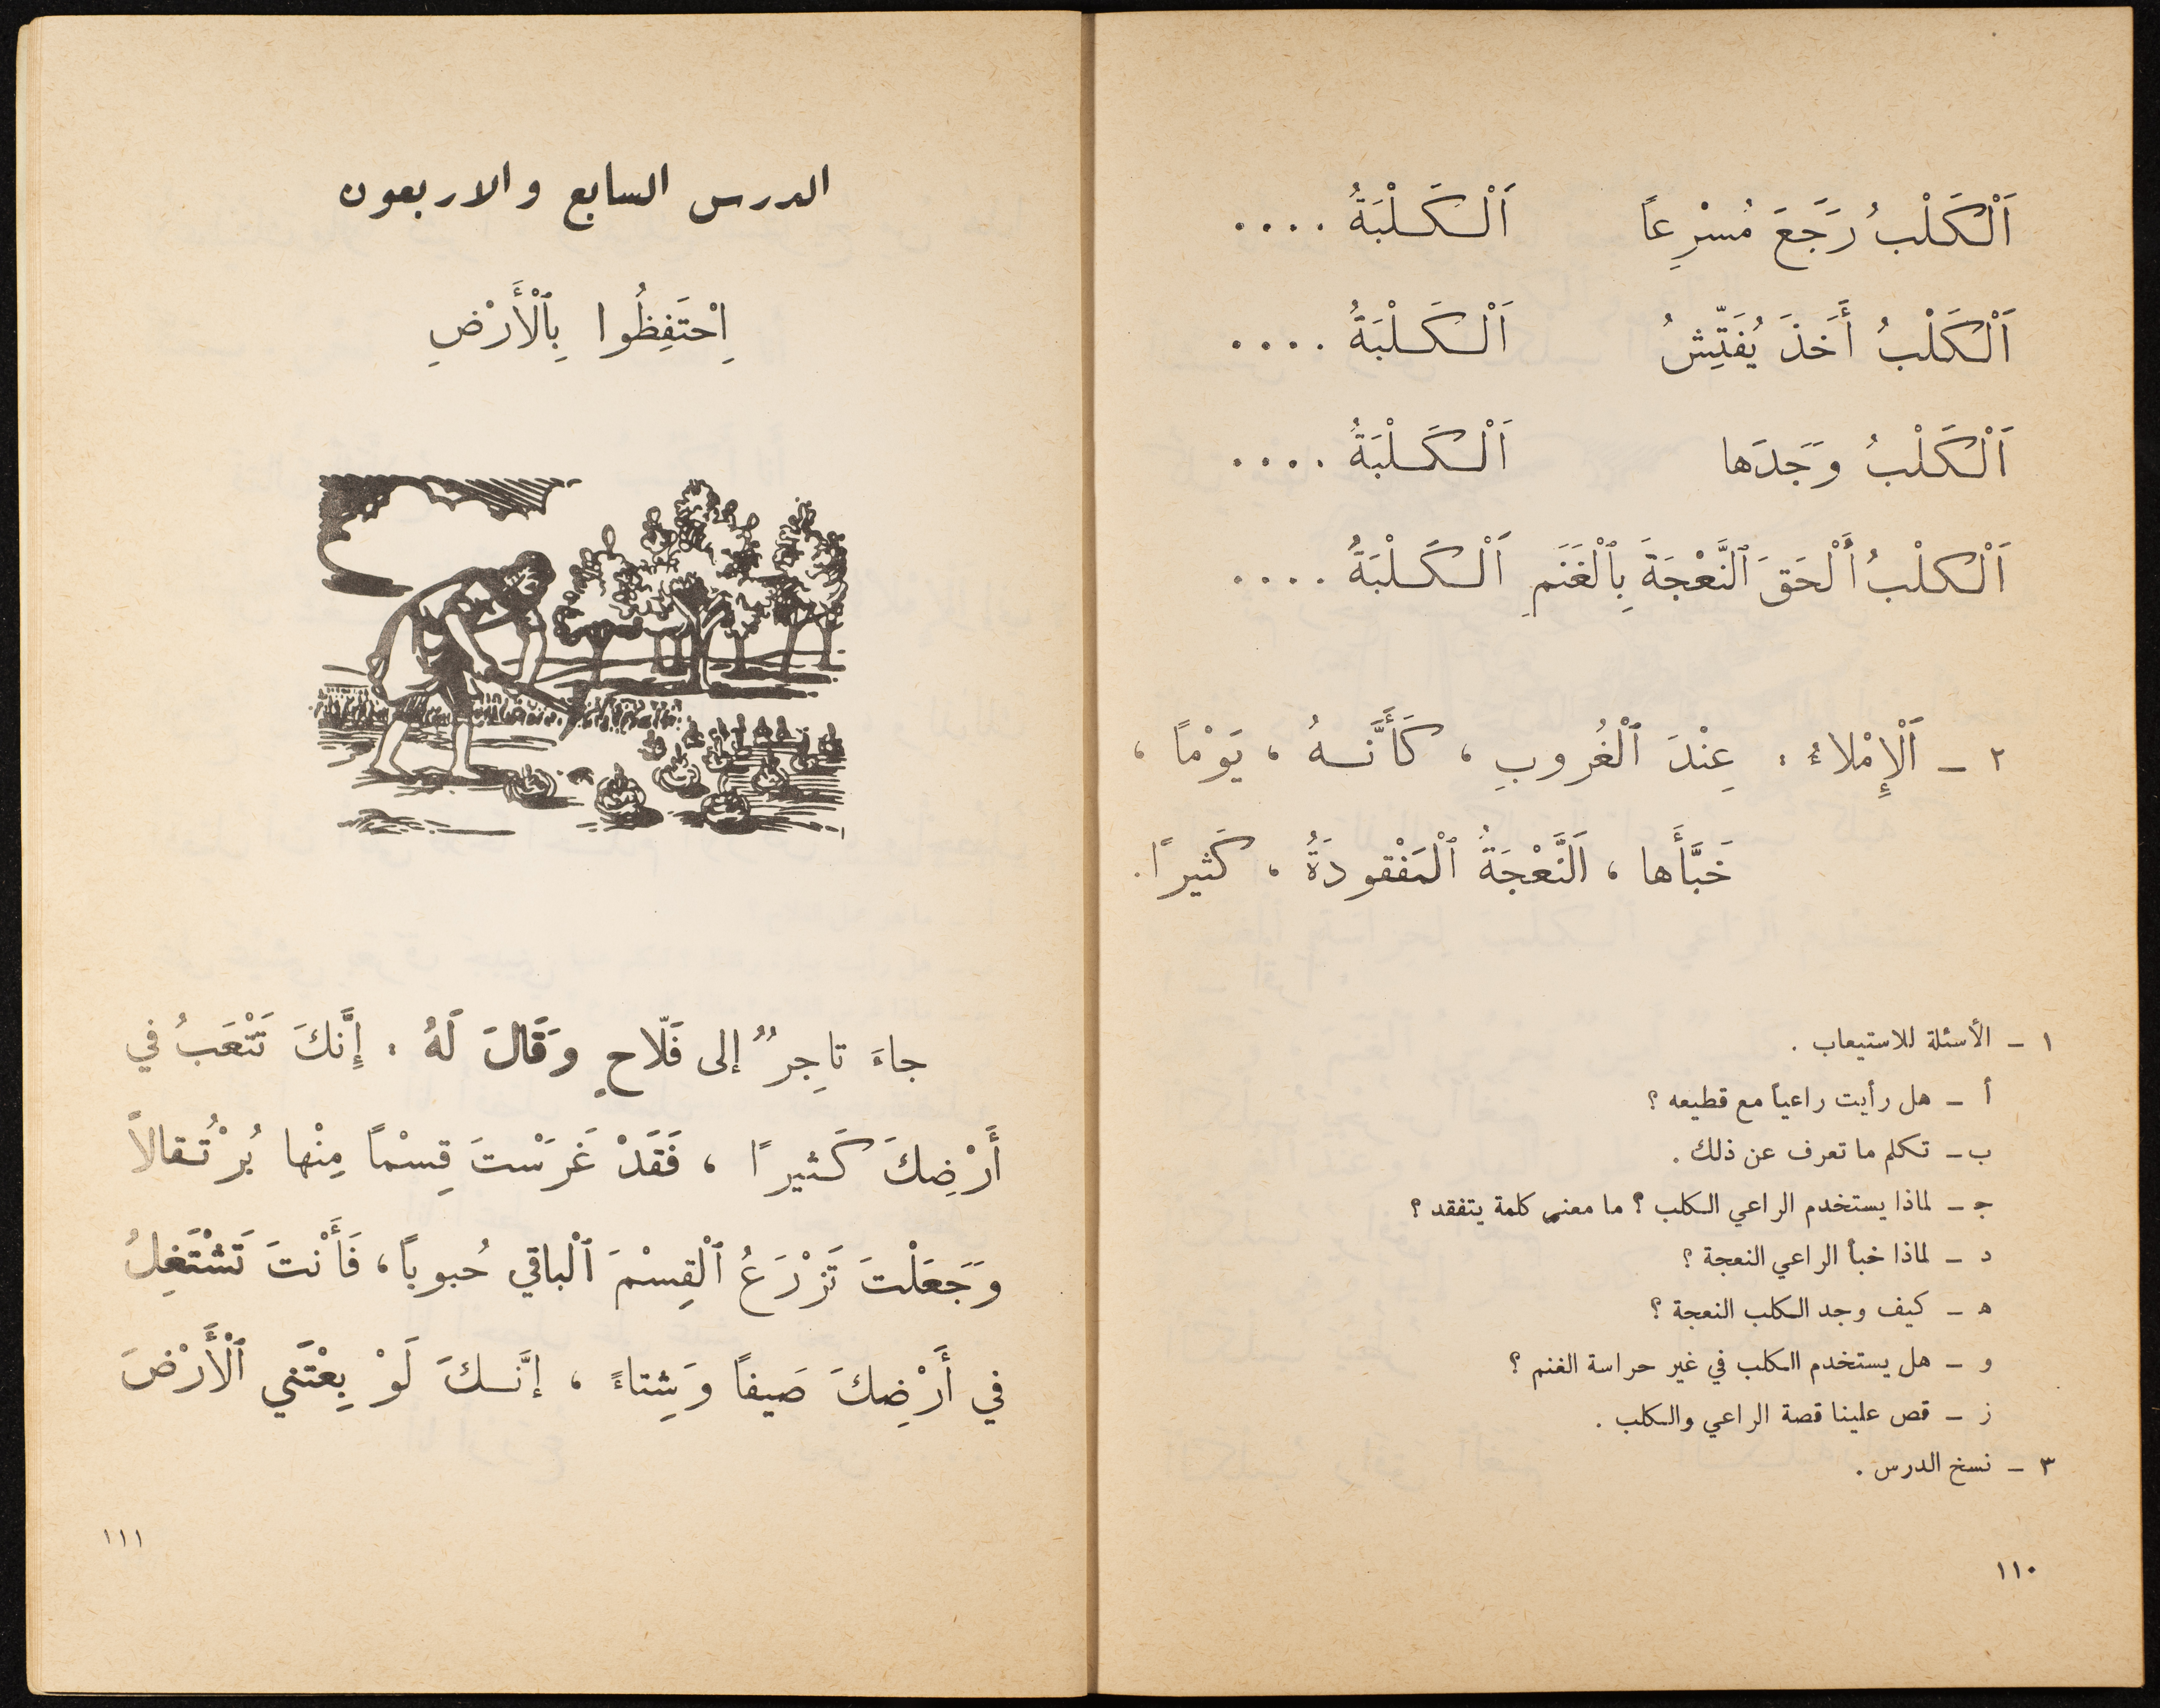 اَلْكَلْبُ رَجَعَ مُسْرِعاً اَلْكَلْبَةُ ....
اَلْكَلْبُ أَخَذَ يُفَتِّشُ اَلْكَلْبَةُ ....
اَلْكَلْبُ وَجَدَها اَلْكَلْبَةُ ....
اَلْكلْبُ أَلْحَقَ ٱلنَّعْجَةَ بِٱلْغَنَمِ اَلْكَلْبَةُ ....
٢ – اَلْإِمْلاءُ : عِنْدَ ٱلْغُروبِ ، كَأَنَّهُ ، يَوْماً ،
خَبَّأَها ، اَلنَّعْجَةُ ٱلْمَفْقودَةُ ، كَثيراً .
١ – الأسئلة للاستيعاب .
أ – هل رأيت راعياً مع قطيعه ؟
ب – تكلم ما تعرف عن ذلك .
ج – لماذا يستخدم الراعي الكلب ؟ ما معنى كلمة يتفقد ؟
د – لماذا خبأ الراعي النعجة ؟
ه – كيف وجد الكلب النعجة ؟
و – هل يستخدم الكلب في غير حراسة الغنم ؟
ز – قص علينا قصة الراعي والكلب .
٣ – نسخ الدرس .
١١٠
الدرس السابع والاربعون
اِحْتَفِظُوا بِٱلْأَرْضِ
جاءَ تاجِرٌ إلى فَلّاحٍ وَقَالَ لَهُ : إِنَّكَ تَتْعَبُ في
أَرْضِكَ كَثيراً ، فَقَدْ غَرَسْتَ قِسْماً مِنْها بُرْتُقالاً
وَجَعَلْتَ تَزْرَعُ ٱلْقِسْمَ ٱلْباقي حُبوباً ، فَأَنْتَ تَشْتَغِلُ
في أَرْضِكَ صَيفاً وَشِتاءً ، إنَّكَ لَوْ بِعْتَني ٱلْأَرْضَ
١١١